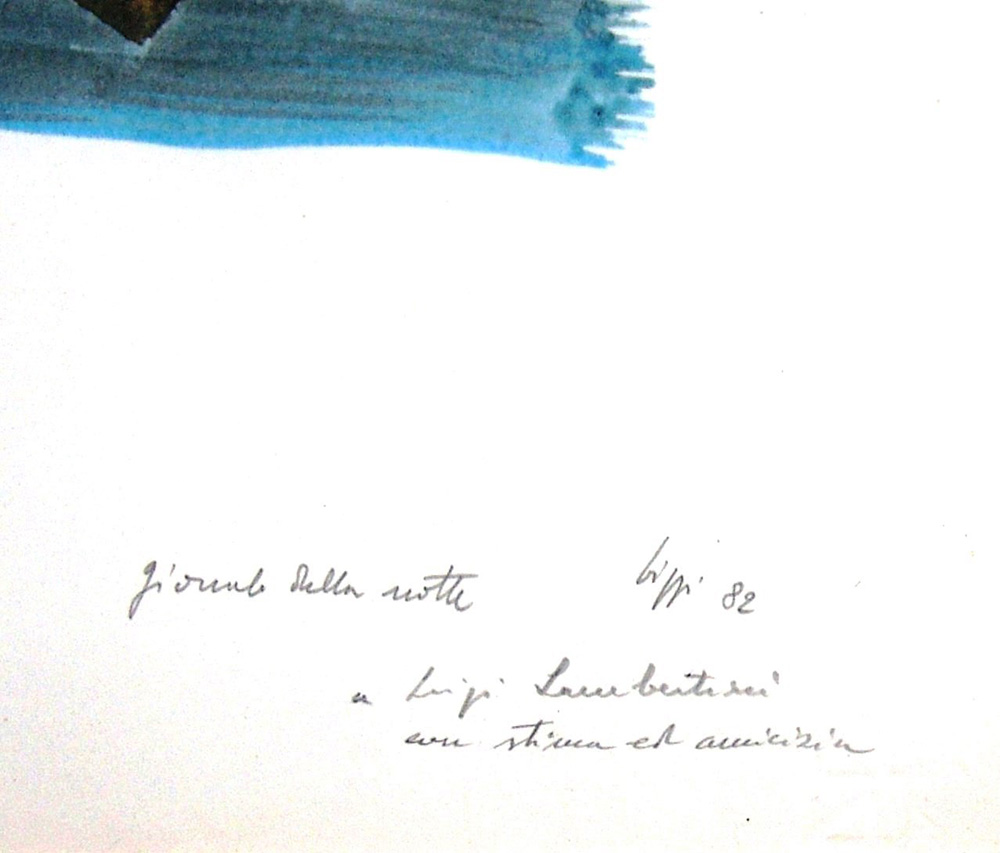 giornale della notte Lippi 82
a Luigi Lambertini
con stima ed amicizia